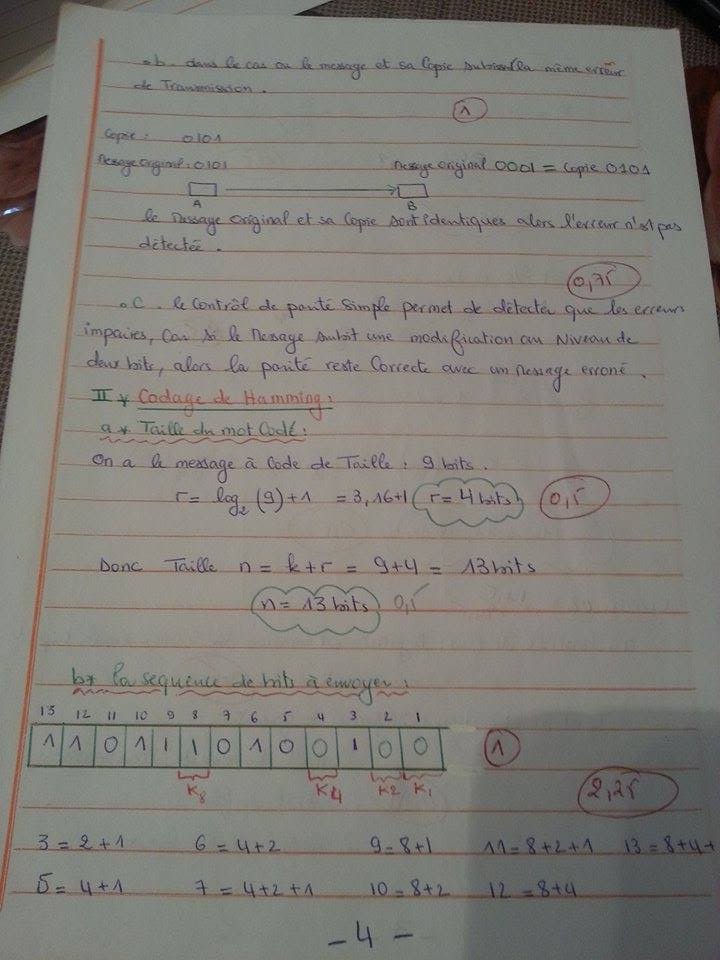 .b. dans le cas ou le message et sa Copie subissent la même erreur
de Transmission.
1
Copie: 0101
Message Original: 0101 Message Original 0001 = Copie 0101
A B
le Message Original et sa Copie sont identiques alors l'erreur n'est pas
détectée.
0,75
.C. le Contrôl de parité Simple permet de détectée que les erreurs
impaires, Car si le Message subit une modification au Niveau de
deux bits, alors la parité reste Correcte avec un Message erroné.
II * Codage de Hamming:
a * Taille du mot Codé:
On a le message à Code de Taille: 9 bits.
r = log2 (9) + 1 = 3,16+1 r = 4 bits 0,5
Donc Taille n = k+r = 9+4 = 13 bits
n = 13 bits 0,5
b* la sequence de bits à envoyer:
13 12 11 10 9 8 7 6 5 4 3 2 1
1 1 0 1 1 1 0 1 0 0 1 0 0 1
K8 K4 K2 K1
2,25
3 = 2+1 6 = 4+2 9 = 8+1 11 = 8+2+1 13 = 8+4+
5 = 4+1 7 = 4+2+1 10 = 8+2 12 = 8+4
- 4 -